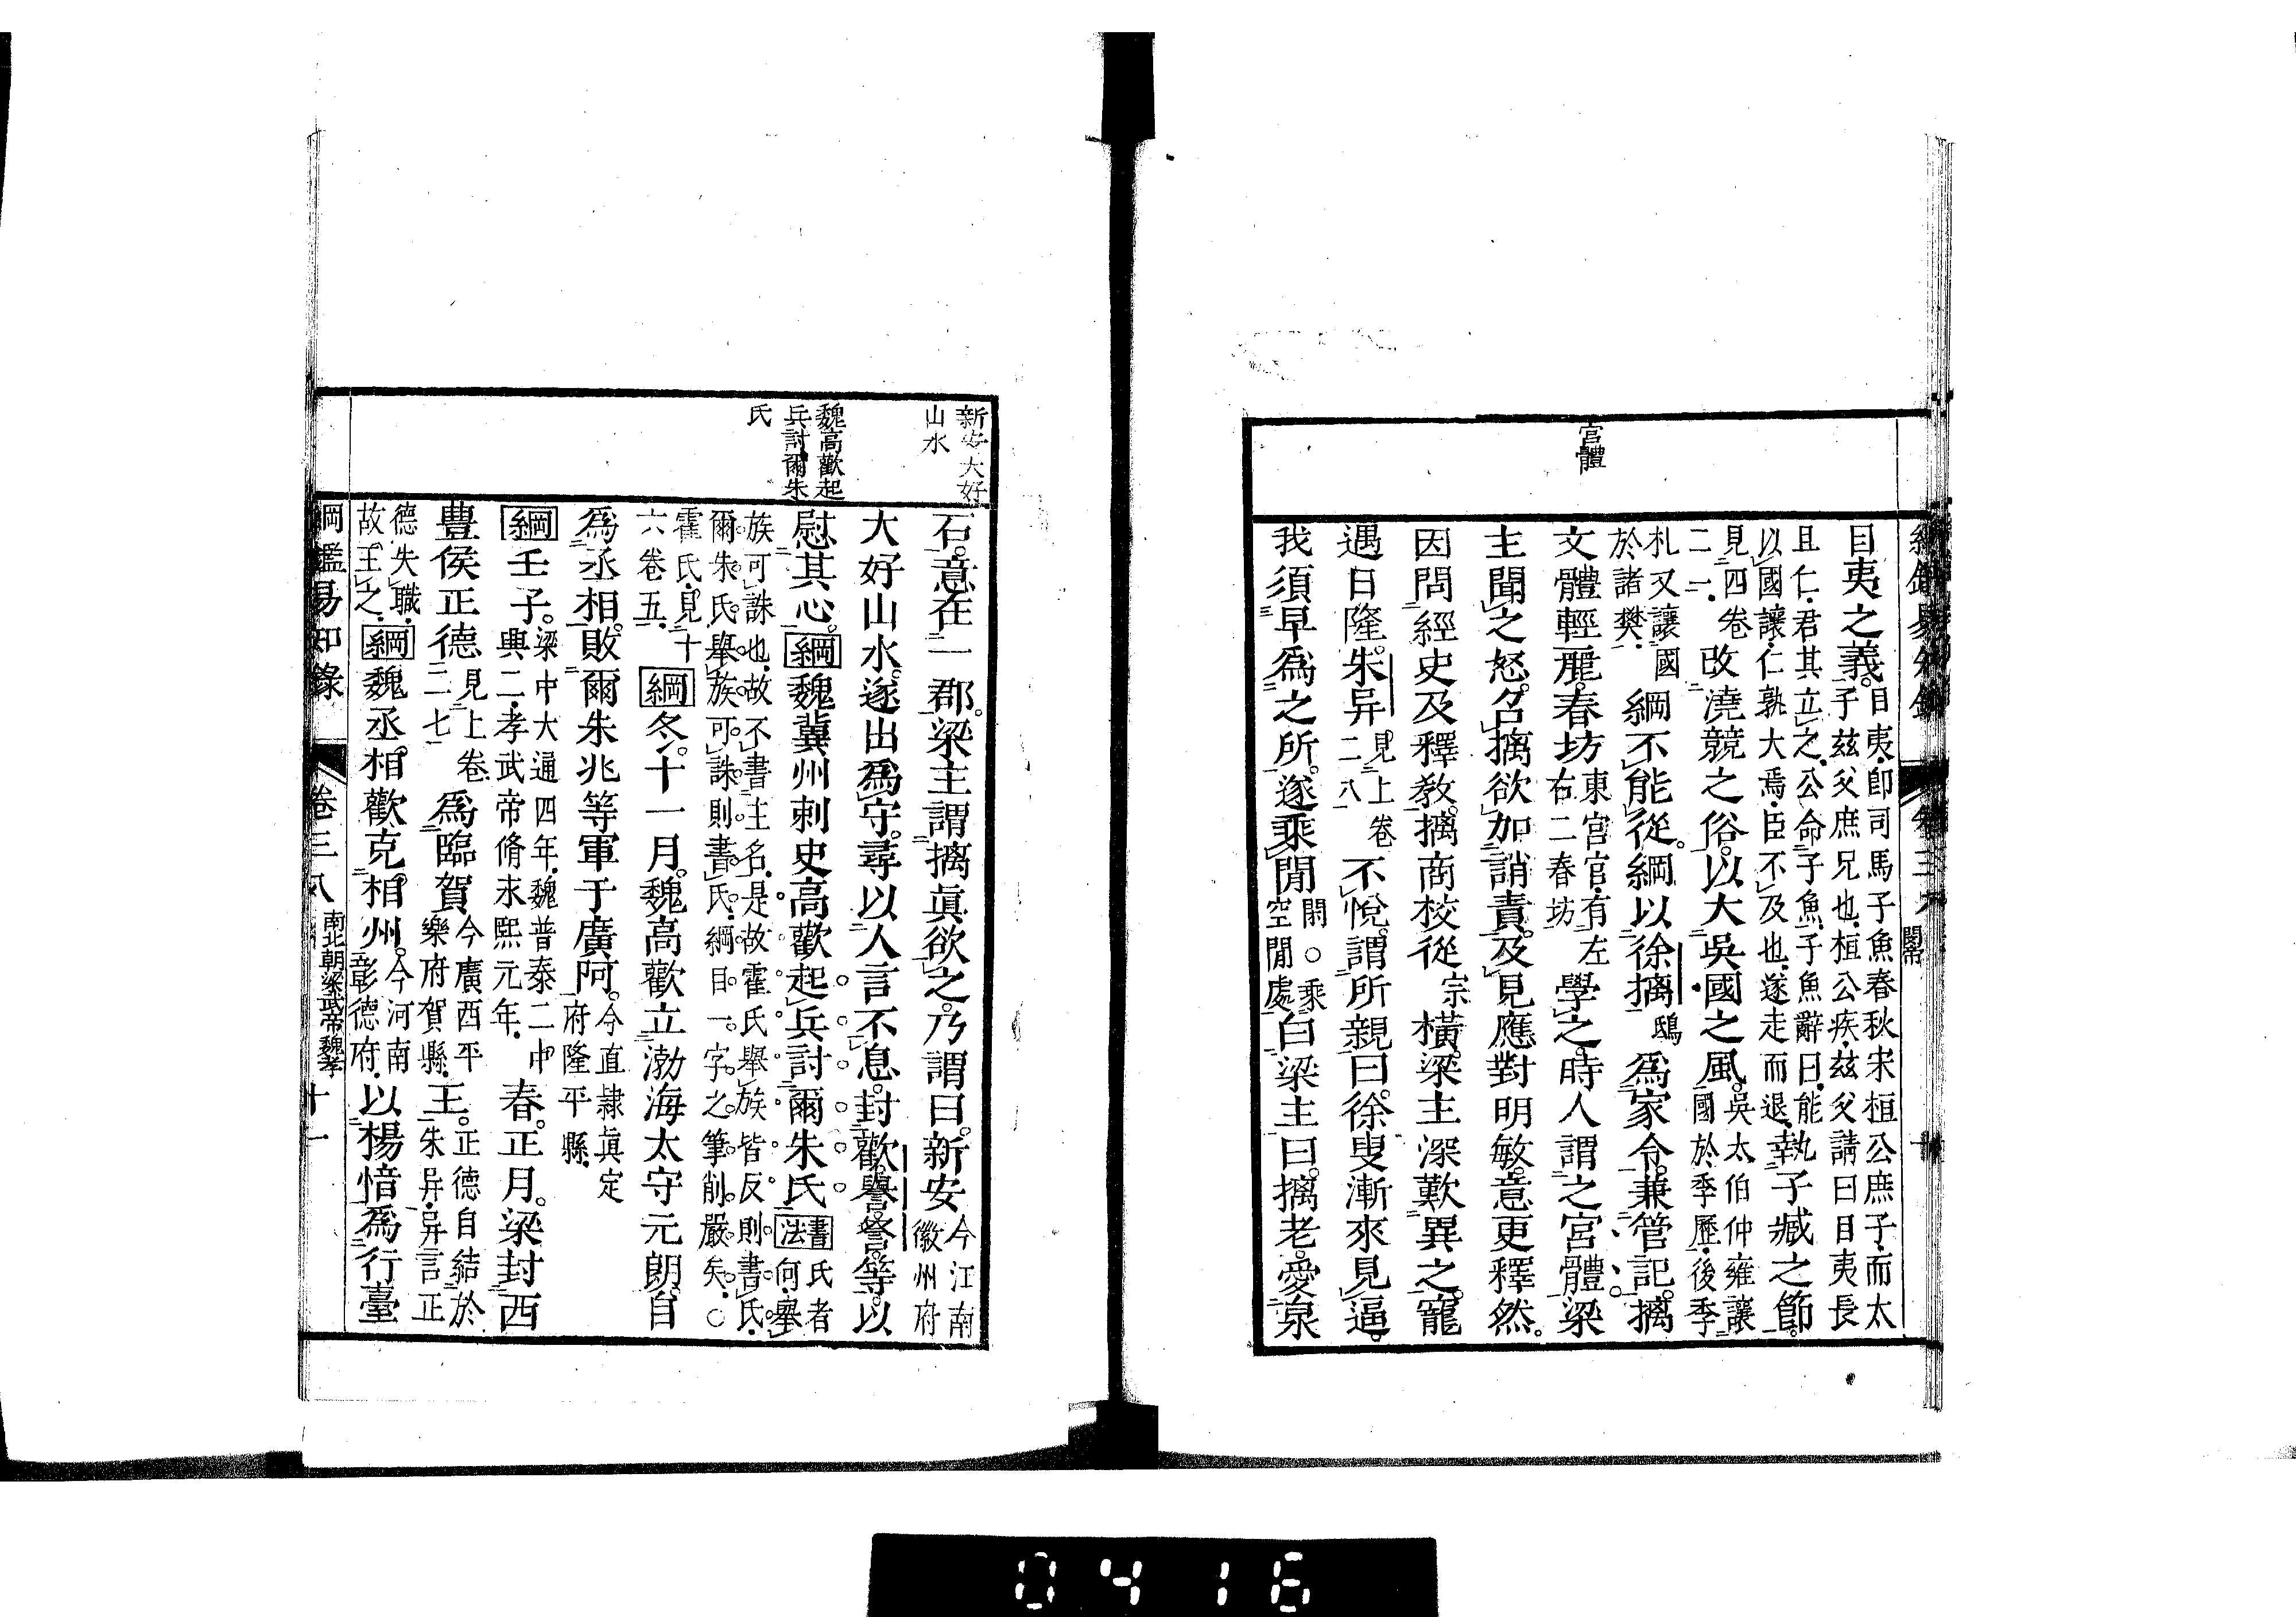 宮體
目夷之義。目夷、卽司馬子魚春秋宋桓公庶子、而太
子茲父庶兄也、桓公疾、茲父請曰目夷長
且仁、君其立之、公命子魚、子魚辭曰、能
以國讓、仁孰大焉、臣不及也、遂走而退、執子臧之節。
見四卷
二一、改澆競之俗。以大吳國之風。吳太伯仲雍讓
國於季歷、後季
札又讓國
於諸樊、綱不能從。綱以徐摛鴟爲家令。兼管記。摛
文體輕麗。春坊東宮官、有左
右二春坊學之。時人謂之宮體。梁
主聞之怒。召摛欲加誚責。及見應對明敏。意更釋然。
因問經史及釋教。摛商校從宗橫。梁主深歎異之。寵
遇日隆。朱异見上卷
二八不悅。謂所親曰。徐叟漸來見逼。
我須早爲之所。遂乘閒閑○乘
空閒處白梁主曰。摛老。愛泉
新安大好
山水
魏高歡起
兵討爾朱
氏
石。意在一郡。梁主謂摛眞欲之。乃謂曰。新安今江南
徽州府
大好山水。遂出爲守。尋以人言不息。封歡譽詧等。以
慰其心。綱魏冀州刺史高歡起兵討爾朱氏書法氏者
何、舉
族可誅也、故不書主名、是故霍氏舉族皆反則書氏、
爾朱氏舉族可誅則書氏、綱目一字之筆削嚴矣、○
霍氏、見十
六卷五、綱冬。十一月。魏高歡立渤海太守元朗。自
爲丞相。敗爾朱兆等軍于廣阿。今直隷眞定
府隆平縣、
綱壬子。梁中大通四年、魏普泰二中
興二、孝武帝脩永熙元年、春。正月。梁封西
豐侯正德見上卷
二七爲臨賀今廣西平
樂府賀縣、王。正德自結於
朱异、异言正
德失職、
故王之、綱魏丞相歡克相州。今河南
彰德府、以楊愔爲行臺
綱鑑易知錄 卷三八 南北朝梁武帝魏孝 十一
0416